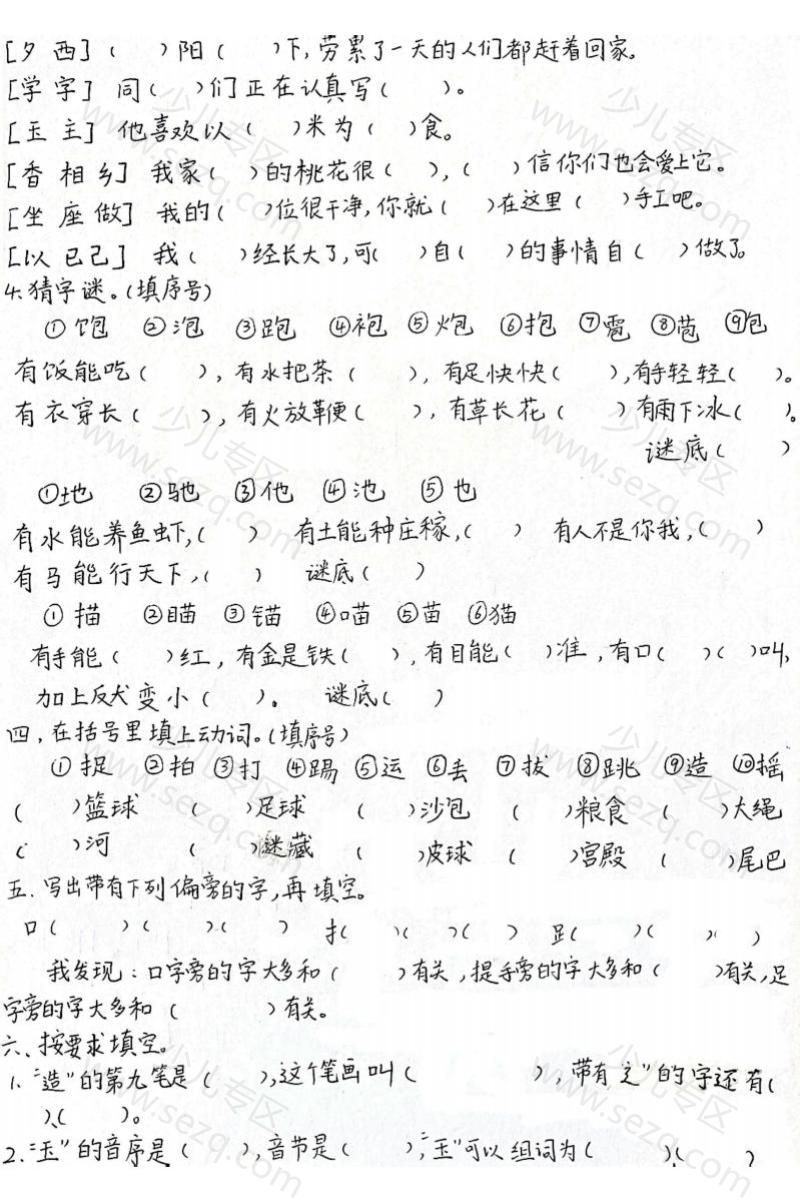 [夕 西] (    )阳(    )下,劳累了一天的人们都赶着回家。
[学 字] 同(    )们正在认真写(    )。
[玉 主] 他喜欢以(    )米为(    )食。
[香 相 乡] 我家(    )的桃花很(    ),(    )信你们也会爱上它。
[坐 座 做] 我的(    )位很干净,你就(    )在这里(    )手工吧。
[以 已 己] 我(    )经长大了,可(    )自(    )的事情自(    )做了。
4.猜字谜。(填序号)
①饱 ②泡 ③跑 ④袍 ⑤炮 ⑥抱 ⑦雹 ⑧苞 ⑨包
有饭能吃(    ),有水把茶(    ),有足快快(    ),有手轻轻(    )。
有衣穿长(    ),有火放鞭(    ),有草长花(    )有雨下冰(    )。
谜底(    )
①地 ②驰 ③他 ④池 ⑤也
有水能养鱼虾,(    ) 有土能种庄稼,(    ) 有人不是你我,(    )
有马能行天下,(    ) 谜底(    )
①描 ②瞄 ③锚 ④喵 ⑤苗 ⑥猫
有手能(    )红,有金是铁(    ),有目能(    )准,有口(    )(    )叫,
加上反犬变小(    )。 谜底(    )
四,在括号里填上动词。(填序号)
①捉 ②拍 ③打 ④踢 ⑤运 ⑥丢 ⑦拔 ⑧跳 ⑨造 ⑩摇
(    )篮球 (    )足球 (    )沙包 (    )粮食 (    )大绳
(    )河 (    )谜藏 (    )皮球 (    )宫殿 (    )尾巴
五.写出带有下列偏旁的字,再填空。
口(    )(    )(    ) 扌(    )(    )(    ) 𧾷(    )(    )(    )
我发现:口字旁的字大多和(    )有关,提手旁的字大多和(    )有关,足
字旁的字大多和(    )有关。
六、按要求填空。
1.“造”的第九笔是(    ),这个笔画叫(    ),带有辶”的字还有(
)、(    )。
2.“玉”的音序是(    ),音节是(    ),“玉”可以组词为(    )、(    )
少儿专区
www.sezq.com